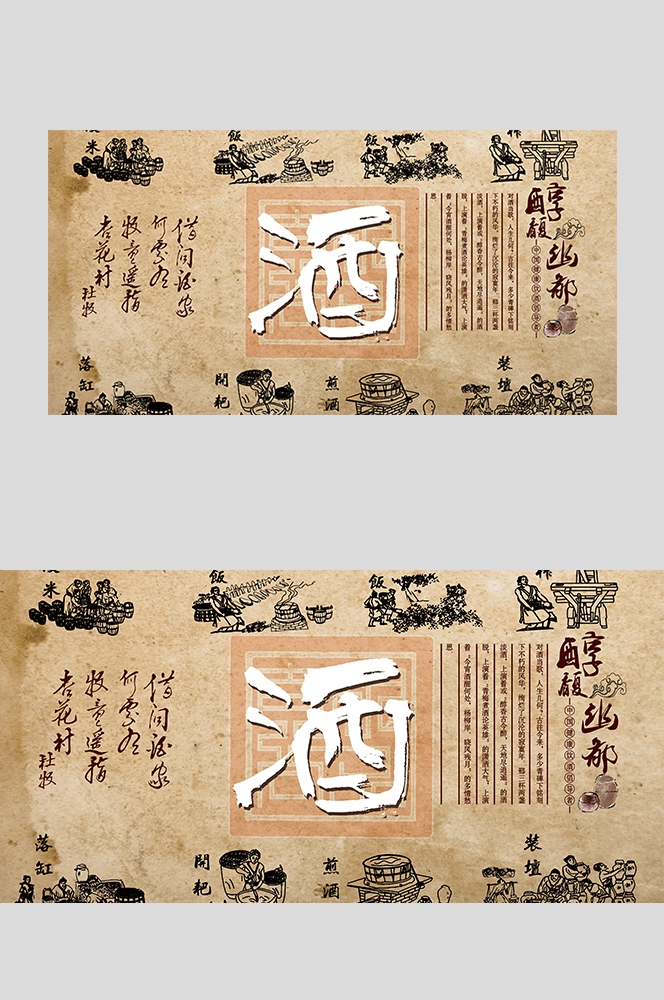 米
飯
飯
醇馥幽郁
中国健康饮酒倡导者
对酒当歌，人生几何？古往今来，多少青碑下铭刻
下不朽的风华，绚烂了沉沦的寂寞年，
三杯两盏
淡酒，上演着或“醇香古今醉，天地尽逍遥，的洒
脱，上演着“青梅煮酒论英雄，的潇洒大气，上演
着“今宵酒醒何处，杨柳岸，晓风残月，的多情愁
思
酒
借问酒家
何处有
牧童遥指
杏花村
杜牧
落缸
開耙
煎酒
装壇
米
飯
飯
醇馥幽郁
中国健康饮酒倡导者
对酒当歌，人生几何？古往今来，多少青碑下铭刻
下不朽的风华，绚烂了沉沦的寂寞年，
三杯两盏
淡酒，上演着或“醇香古今醉，天地尽逍遥，的洒
脱，上演着“青梅煮酒论英雄，的潇洒大气，上演
着“今宵酒醒何处，杨柳岸，晓风残月，的多情愁
思
酒
借问酒家
何处有
牧童遥指
杏花村
杜牧
落缸
開耙
煎酒
装壇